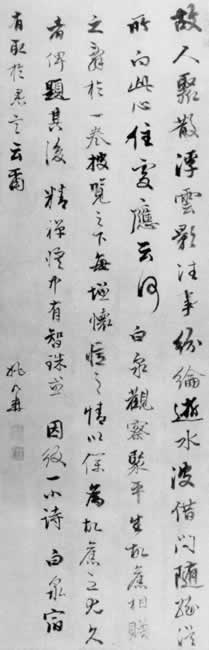 故人聚散浮雲影往事紛綸逝水波借問隨緣
所向此心住處應云何 白泉觀察聚平生故舊相贈
之辭於一卷披覽之下每增懷舊之情以僕為故舊之尤久
者俾題其後 精禪有智珠 因綴一小詩 白泉宿
有取於是言云爾
姚鼐